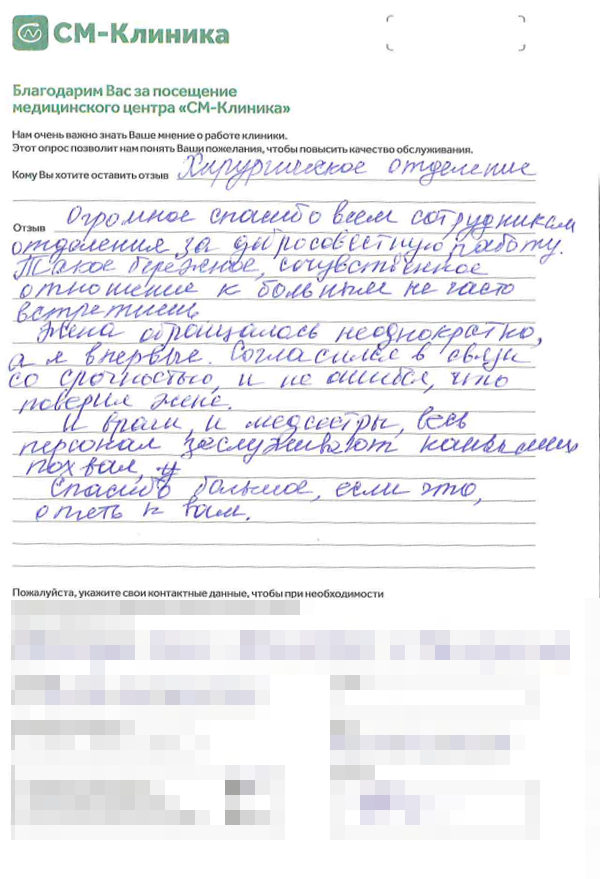 СМ-Клиника
Благодарим Вас за посещение
медицинского центра «СМ-Клиника»
Нам очень важно знать Ваше мнение о работе клиники.
Этот опрос позволит нам понять Ваши пожелания, чтобы повысить качество обслуживания.
Кому Вы хотите оставить отзыв Хирургическое отделение
Отзыв Огромное спасибо всем сотрудникам
отделения за добросовестную работу.
Такое бережное, сочувственное
отношение к больным не часто
встретишь.
Жена обращалась неоднократно,
а я впервые. Согласился в связи
со срочностью, и не ошибся, что
поверил жене.
И врачи, и медсестры, весь
персонал заслуживают наивысших
похвал,
Спасибо большое, если что,
опять к вам.
Пожалуйста, укажите свои контактные данные, чтобы при необходимости